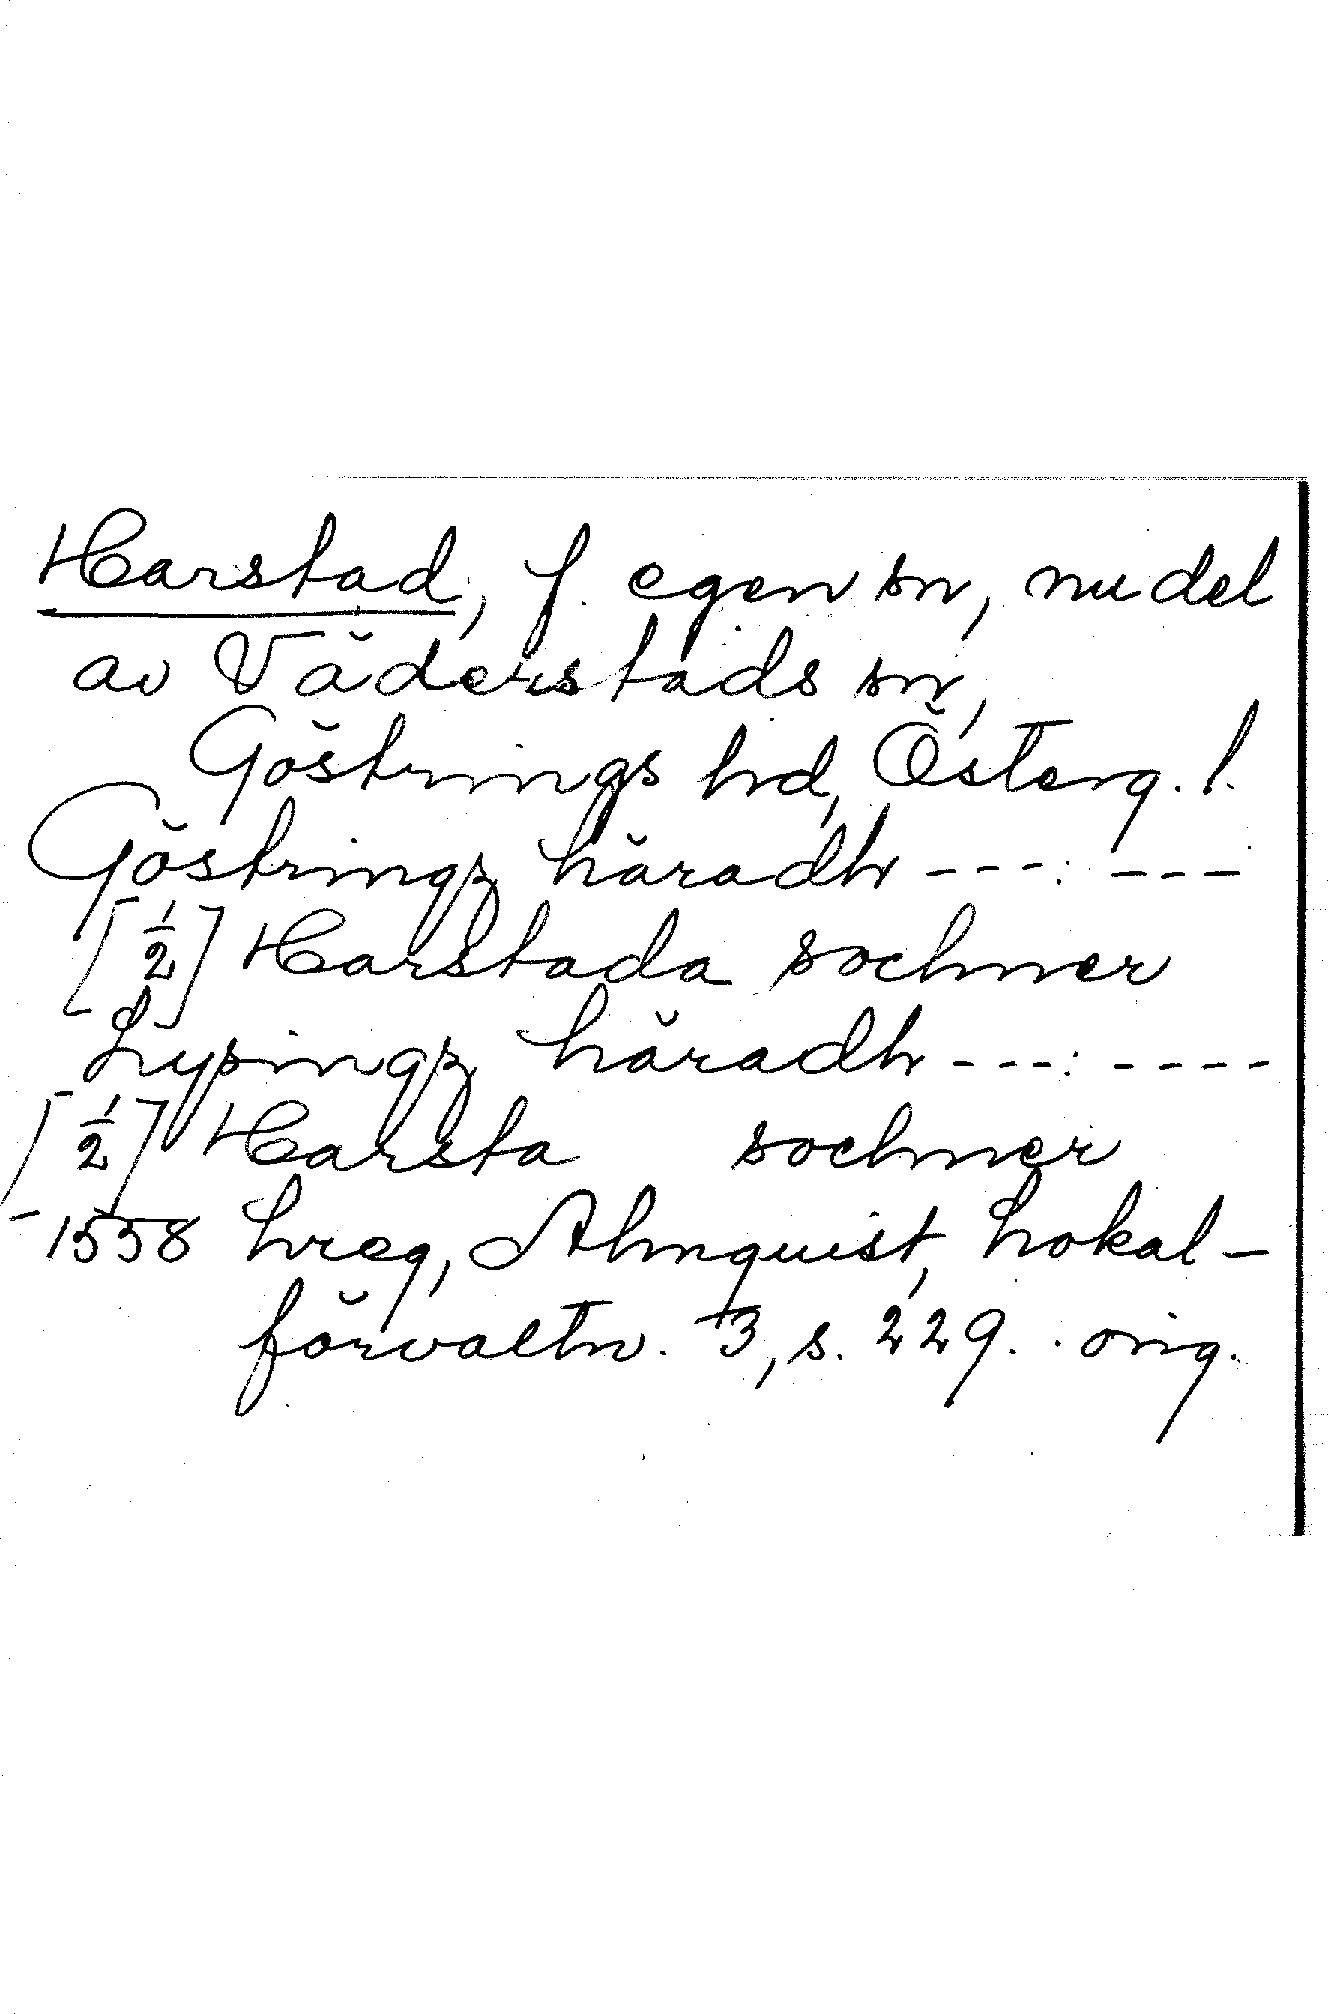 Harstad, f. egen sn, nu del
av Väderstads sn,
Göstrings hd, Österg. l.
Göstringz häradh ---: ---
[½] Harstada sochner
Lysingz häradh ---: ----
[½] Harsta sochner
1558 hreg, Almquist, Lokal-
förvaltn. 3, s. 229. orig.